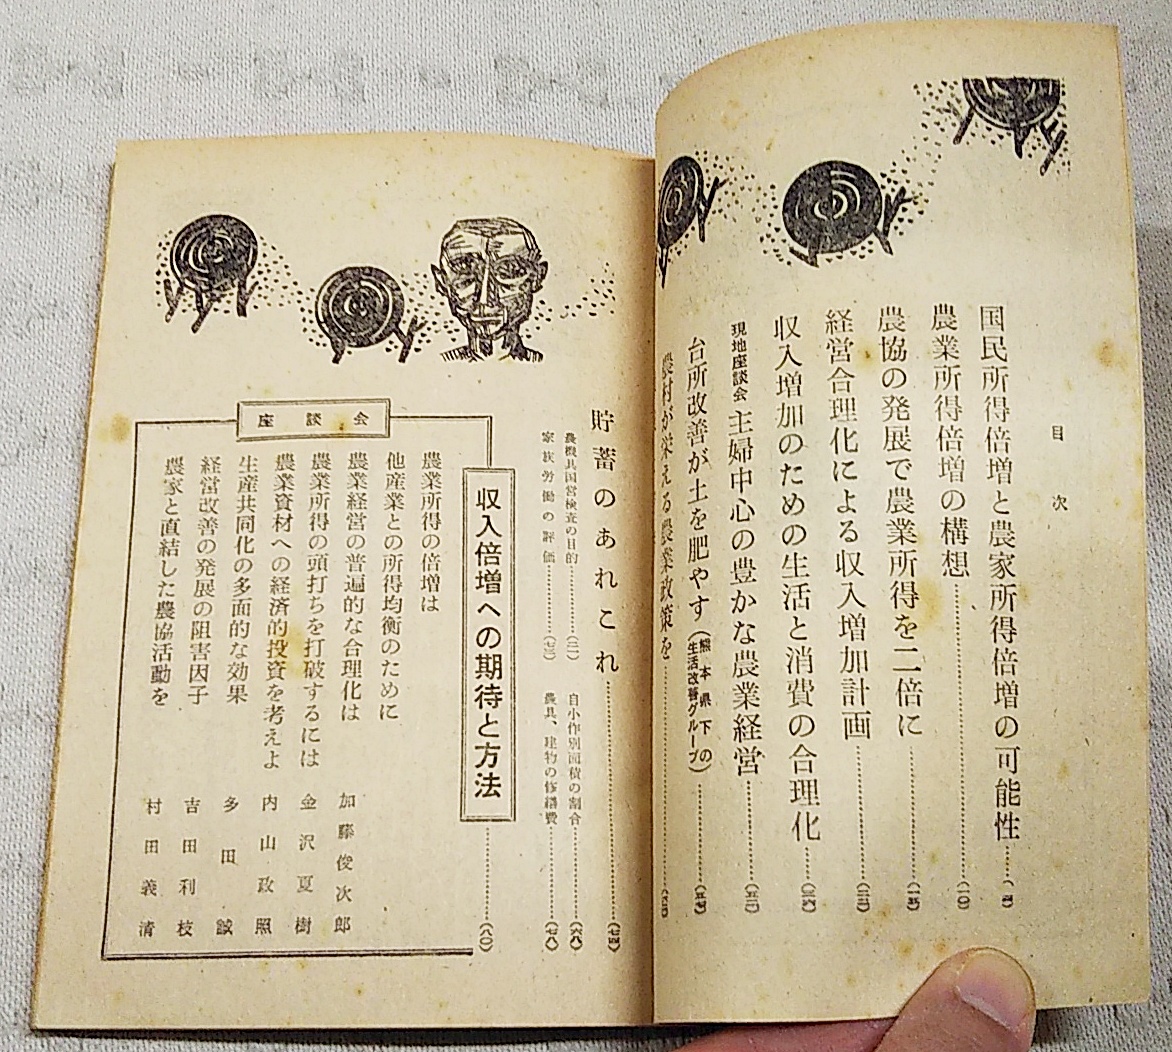 目次
国民所得倍増と農家所得倍増の可能性
農業所得倍増の構想……(一〇)
農協の発展で農業所得を二倍に
経営合理化による収入増加計画
収入増加のための生活と消費の合理化
現地座談会 主婦中心の豊かな農業経営
台所改善が土を肥やす(熊本県下の生活改善グループ)
農村が栄える農業政策を
貯蓄のあれこれ……(七四)
農機具国営検査の目的
家族労働の評価
自小作別面積の割合……(六八)
農具、建物の修繕費……(七八)
座談会
収入倍増への期待と方法……(八〇)
農業所得の倍増は
他産業との所得均衡のために
農業経営の普遍的な合理化は
農業所得の頭打ちを打破するには
農業資材への経済的投資を考えよ
生産共同化の多面的な効果
経営改善の発展の阻害因子
農家と直結した農協活動を
加藤俊次郎
金沢夏樹
内山政照
多田誠
吉田利枝
村田義清